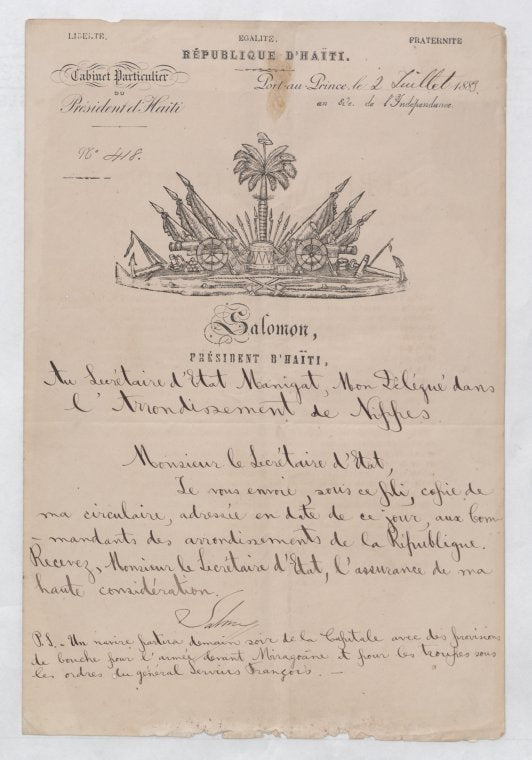 LIBERTÉ, EGALITÉ, FRATERNITÉ
RÉPUBLIQUE D'HAÏTI.
Cabinet Particulier
DU
Président d'Haïti
Port-au-Prince, le 2 Juillet 1883
an 80e. de l'Indépendance.
No 418.
Salomon,
PRÉSIDENT D'HAÏTI,
Au Secrétaire d'Etat Manigat, Mon Délégué dans
l'Arrondissement de Nippes
Monsieur le Secrétaire d'Etat,
Je vous envoie, sous ce pli, copie de
ma circulaire, adressée en date de ce jour, aux Com-
-mandants des arrondissements de la République.
Recevez, Monsieur le Secrétaire d'Etat, l'assurance de ma
haute considération.
Salomon
P.S. - Un navire partira demain soir de la Capitale avec des provisions
de bouche pour l'armée devant Miragoâne et pour les troupes sous
les ordres du général Servius François. —